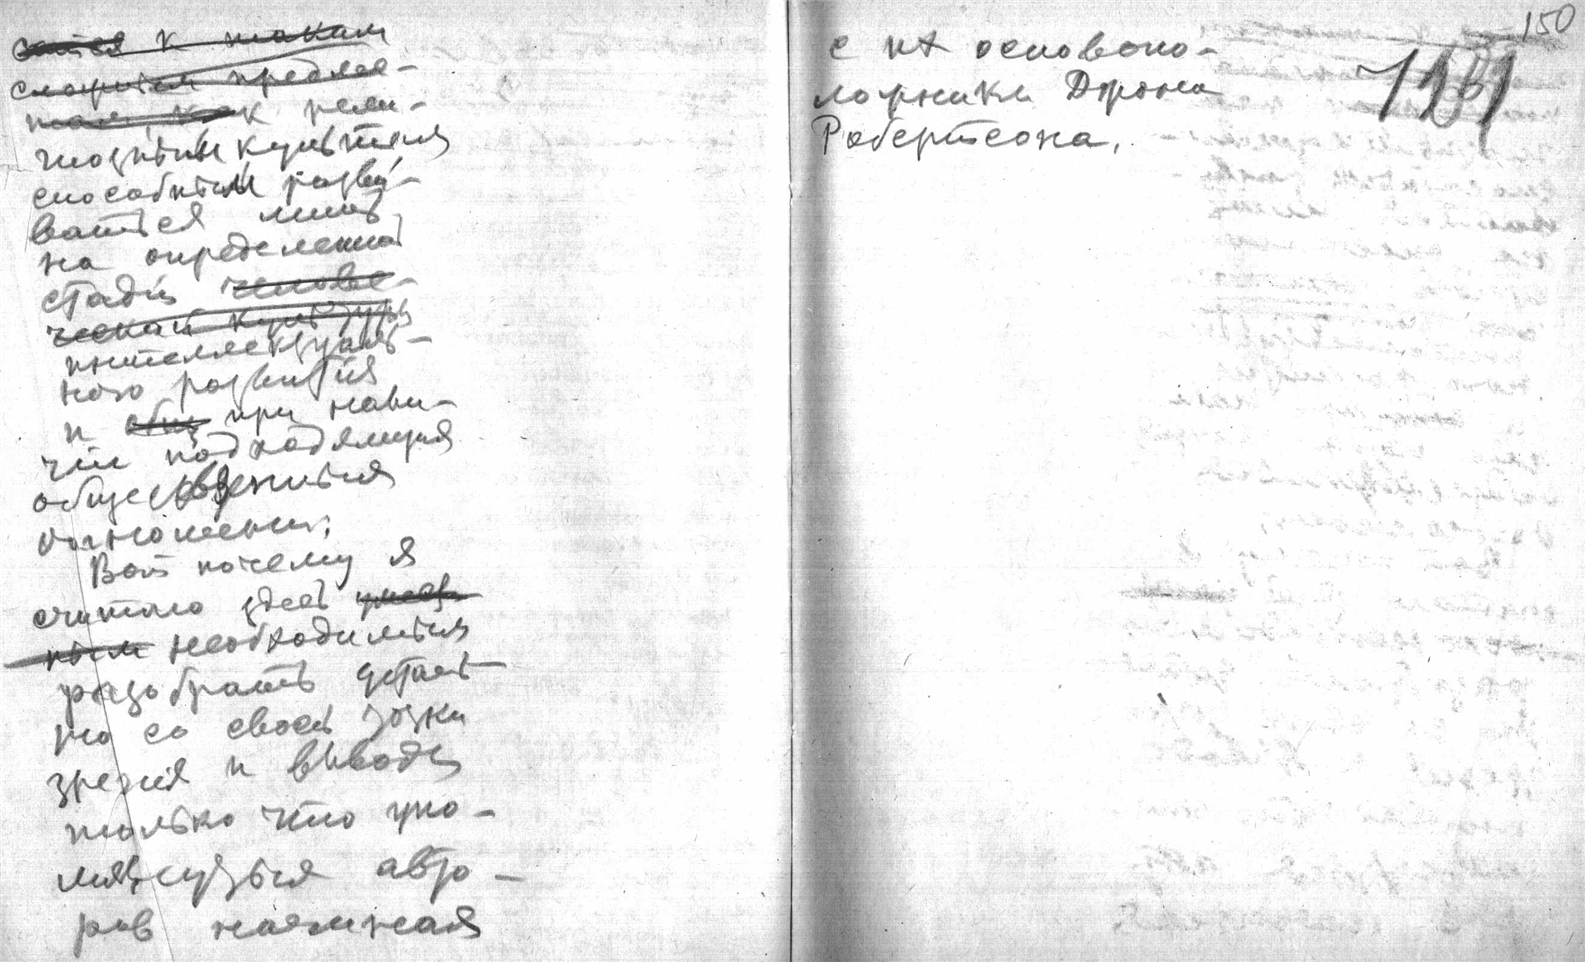 к таким
сложным предме-
там, как рели-
гиозный культ для
способный разви-
ваться лишь
на определенной
стадіи челове-
ческой культуры
интеллектуаль-
ного развитія
и общ при нали-
чіи подходящія
общественныя
отношени;
Вот почему я
считаю здесь
ным необходимым
разобрать деталь-
но со своей точки
зренія и выводы
только что упо-
мянутыя авто-
ров начиная
150
с их основопо-
ложника Джона
Робертсона.